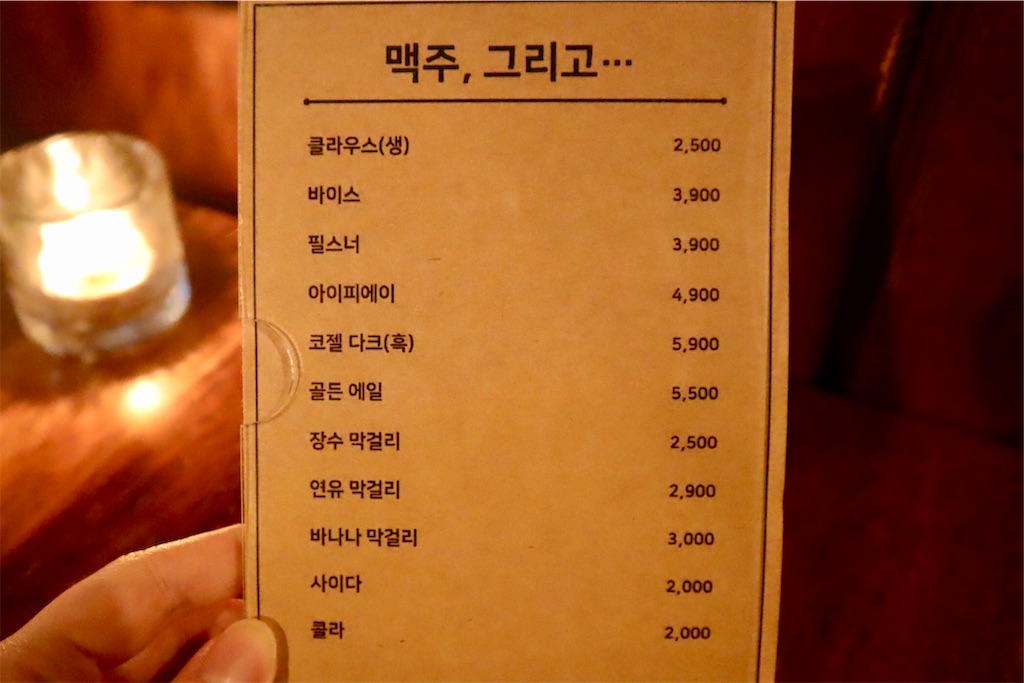 맥주, 그리고…
클라우스(생) 2,500
바이스 3,900
필스너 3,900
아이피에이 4,900
코젤 다크(흑) 5,900
골든 에일 5,500
장수 막걸리 2,500
연유 막걸리 2,900
바나나 막걸리 3,000
사이다 2,000
콜라 2,000